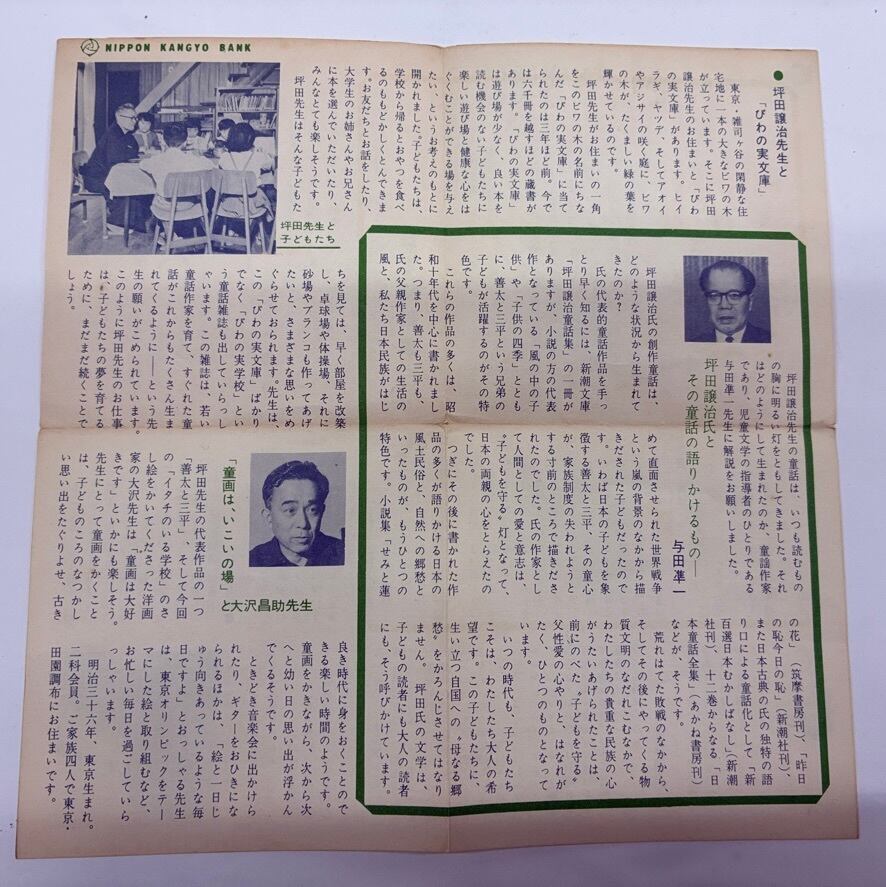 NIPPON KANGYO BANK
●坪田譲治先生と
「びわの実文庫」
東京・雑司ヶ谷の閑静な住
宅地に一本の大きなビワの木
が立っています。そこに坪田
譲治先生のお住まいと「びわ
の実文庫」があります。ヒイ
ラギ、ヤツデ、そしてアオイ
やアジサイの咲く庭に、ビワ
の木が、たくましい緑の葉を
輝かせているのです。
坪田先生がお住まいの一角
をこのビワの木の名前にちな
んだ「びわの実文庫」に当て
られたのは三年ほど前。今で
は六千冊を越すほどの蔵書が
あります。「びわの実文庫」
は遊び場が少なく、良い本を
読む機会のない子どもたちに
楽しい遊び場と健康な心をは
ぐくむことができる場を与え
たい、というお考えのもとに
開かれました。子どもたちは、
学校から帰るとおやつを食べ
るのももどかしくとんできま
す。お友だちとお話をしたり、
大学生のお姉さんやお兄さん
に本を選んでいただいたり、
みんなとても楽しそうです。
坪田先生はそんな子どもた
坪田先生と
子どもたち
ちを見ては、早く部屋を改築
し、卓球場や体操場、それに
砂場やブランコも作ってあげ
たいと、さまざまな思いをめ
ぐらせておられます。先生は、
この「びわの実文庫」ばかり
でなく「びわの実学校」とい
う童話雑誌も出していらっし
ゃいます。この雑誌は、若い
童話作家を育て、すぐれた童
話がこれからもたくさん生ま
れてくるように――という先
生の願いがこめられています。
このように坪田先生のお仕事
は、子どもたちの夢を育てる
ために、まだまだ続くことで
しょう。
坪田譲治先生の童話は、いつも読むもの
の胸に明るい灯をともしてきました。それ
はどのようにして生まれたのか、童謡作家
であり、児童文学の指導者のひとりである
与田凖一先生に解説をお願いしました。
坪田譲治氏と
その童話の語りかけるもの――
与田凖一
坪田譲治氏の創作童話は、
どのような状況から生まれて
きたのか？
氏の代表的童話作品を手っ
とり早く知るには、新潮文庫
「坪田譲治童話集」の一冊が
ありますが、小説の方の代表
作となっている「風の中の子
供」や「子供の四季」ととも
に、善太と三平という兄弟の
子どもが活躍するのがその特
色です。
これらの作品の多くは、昭
和十年代を中心に書かれまし
た。つまり、善太も三平も、
氏の父親作家としての生活の
風と、私たち日本民族がはじ
めて直面させられた世界戦争
という嵐の背景のなかから描
きだされた子どもだったので
す。いわば日本の子どもを象
徴する善太と三平、その童心
が、家族制度の失われようと
する寸前のところで描きださ
れたのでした。氏の作家とし
て人間としての愛と意志は、
〝子どもを守る〟灯となって、
日本の両親の心をとらえたの
でした。
つぎにその後に書かれた作
品の多くが語りかける日本の
風土民俗と、自然への郷愁と
いったものが、もうひとつの
特色です。小説集「せみと蓮
の花」（筑摩書房刊）、「昨日
の恥今日の恥」（新潮社刊）、
また日本古典の氏の独特の語
り口による童話化として「新
百選日本むかしばなし」（新潮
社刊）、十二巻からなる「日
本童話全集」（あかね書房刊）
などが、そうです。
荒れはてた敗戦のなかから、
そしてその後にやってくる物
質文明のなだれこむなかで、
わたしたちの貴重な民族の心
がうたいあげられたことは、
前にのべた〝子どもを守る〟
父性愛の心やりと、はなれが
たく、ひとつのものとなって
います。
いつの時代も、子どもたち
こそは、わたしたち大人の希
望です。この子どもたちに、
生い立つ自国への〝母なる郷
愁〟をかろんじさせてはなり
ません。坪田氏の文学は、
子どもの読者にも大人の読者
にも、そう呼びかけています。
「童画は、いこいの場」
と大沢昌助先生
坪田先生の代表作品の一つ
「善太と三平」、そして今回
の「イタチのいる学校」のさ
し絵をかいてくださった洋画
家の大沢先生は「童画は大好
きです」といかにも楽しそう。
先生にとって童画をかくこと
は、子どものころのなつかし
い思い出をたぐりよせ、古き
良き時代に身をおくことので
きる楽しい時間のようです。
童画をかきながら、次から次
へと幼い日の思い出が浮かん
でくるそうです。
ときどき音楽会に出かけら
れたり、ギターをおひきにな
られるほかは、「絵と一日じ
ゅう向きあっているような毎
日ですよ」とおっしゃる先生
は、東京オリンピックをテー
マにした絵と取り組むなど、
お忙しい毎日を過ごしていら
っしゃいます。
明治三十六年、東京生まれ。
二科会員。ご家族四人で東京・
田園調布にお住まいです。